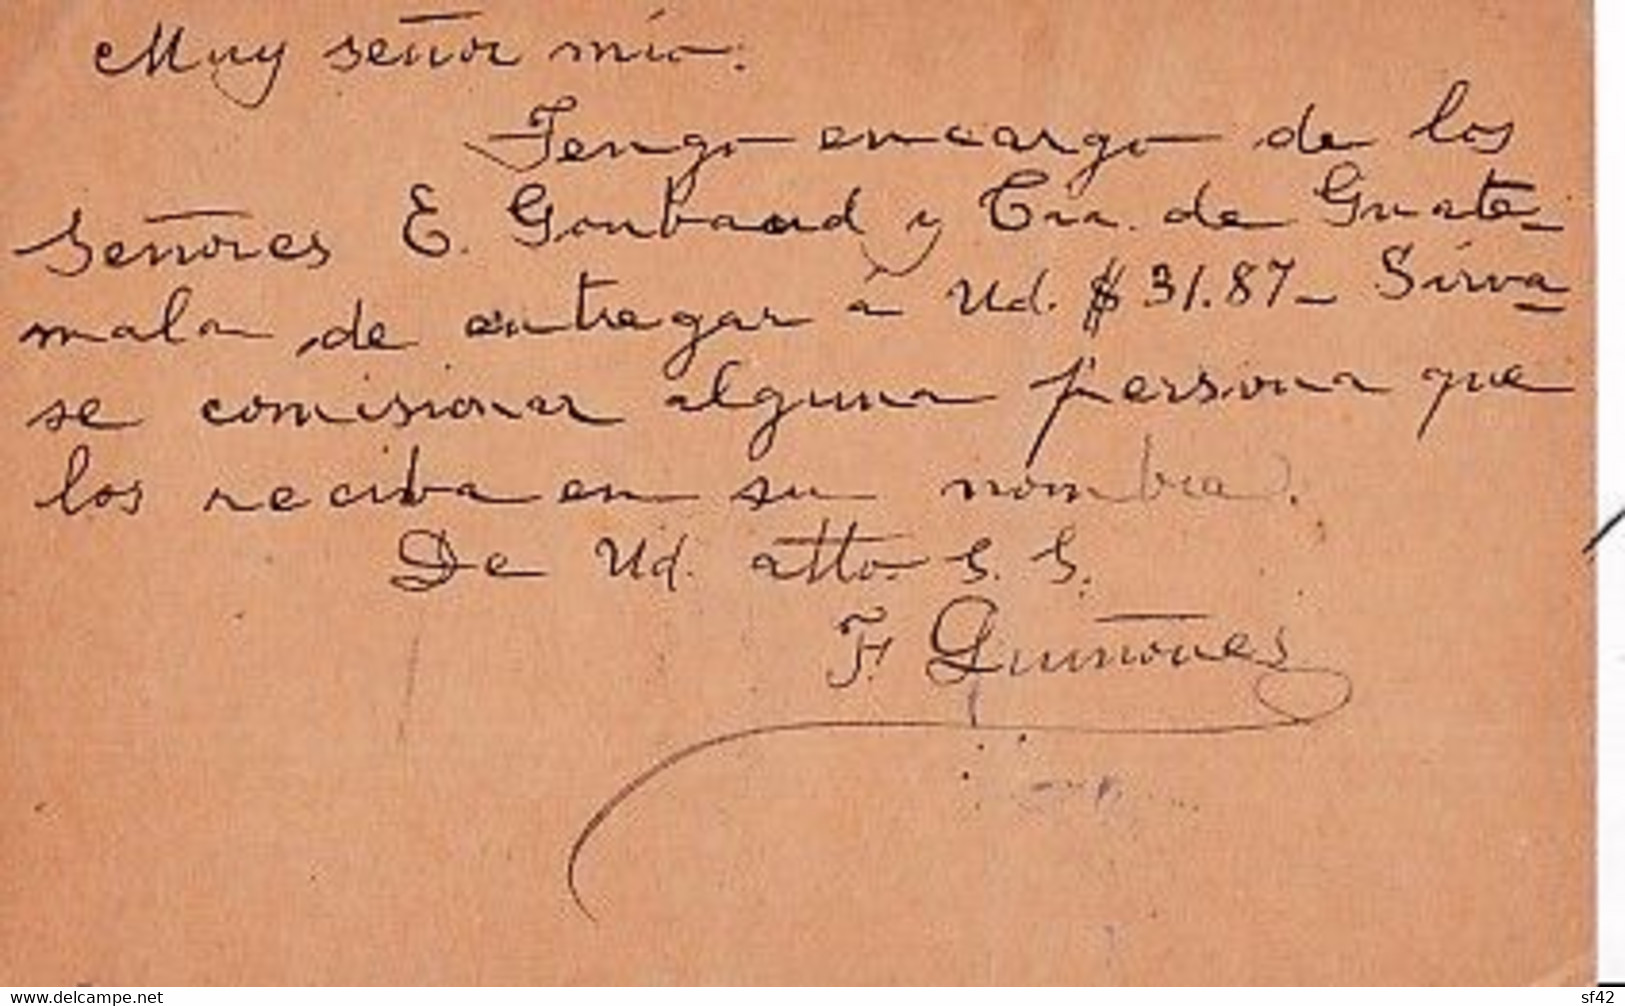 Muy señor mio:
Tengo encargo de los
señores E. Goubaud y Cia. de Guate-
mala, de entregar á Ud. $ 31.87- Sirva-
se comisionar alguna persona que
los reciba en su nombre.
De Ud. atto. S. S.
F. Quiñones
www.delcampe.net
sf42